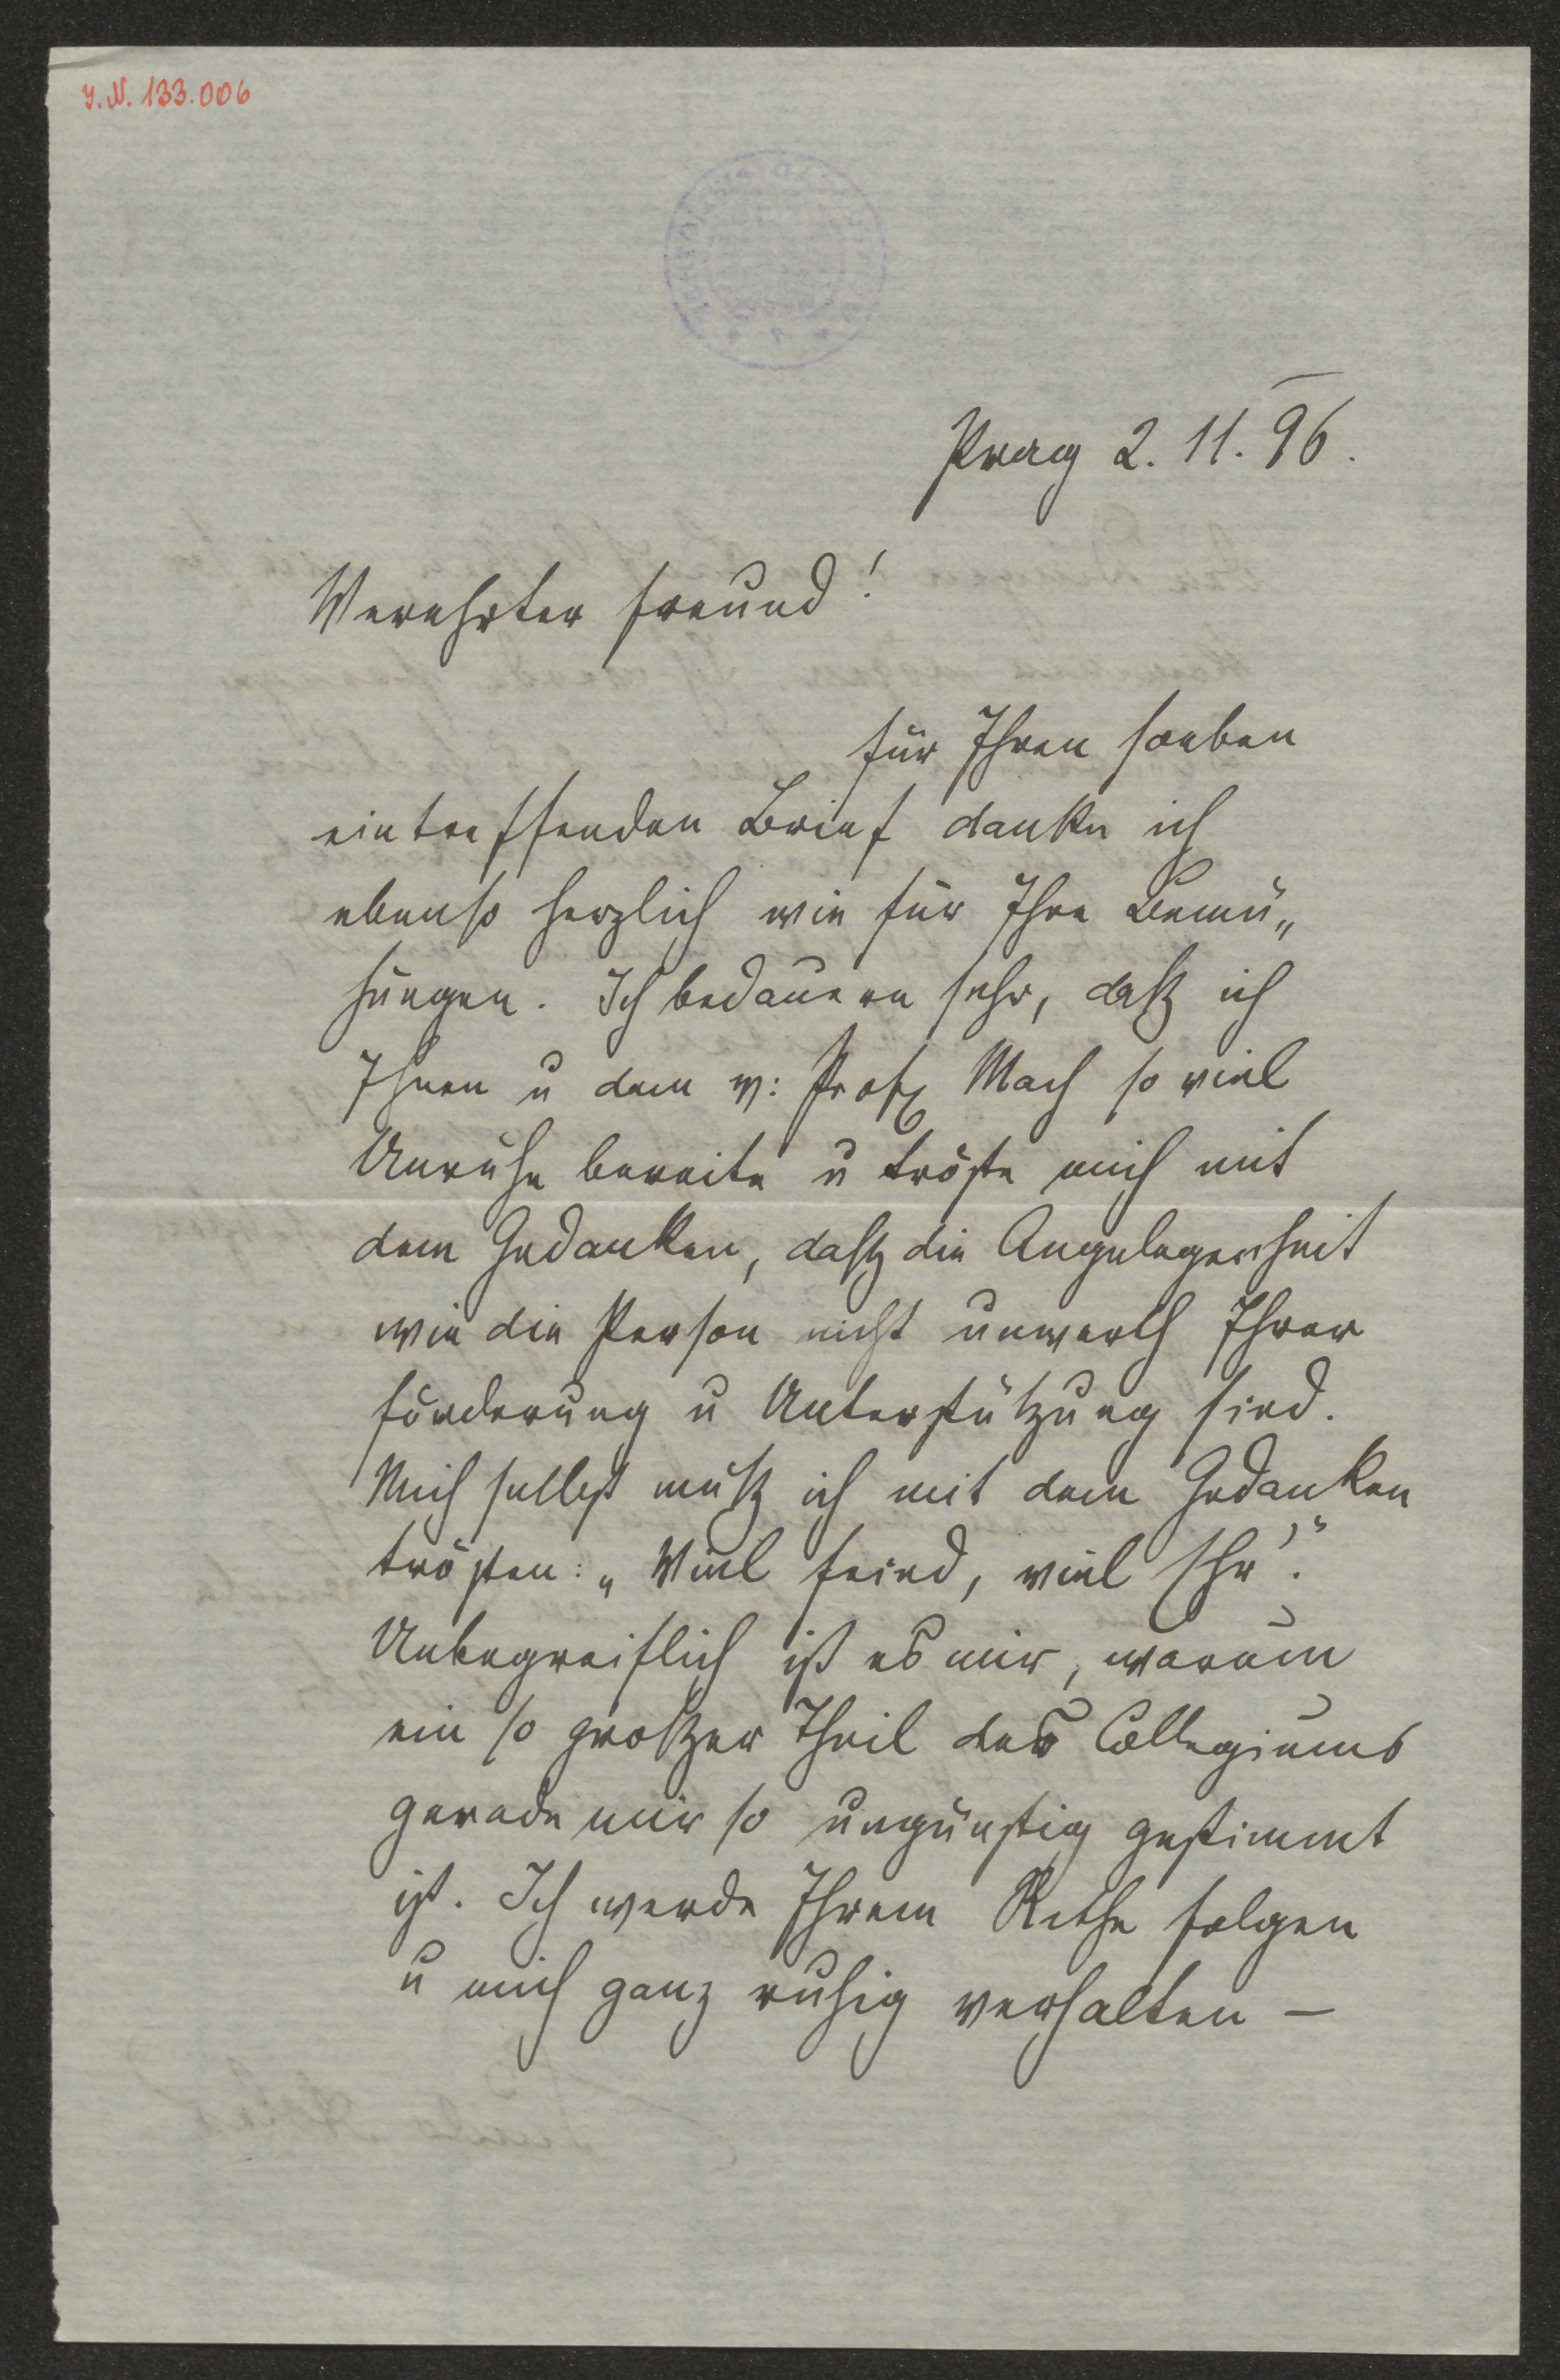 I. N. 133.006
Prag 2. 11. 96.
Verehrter Freund!
für Ihren soeben
eintreffenden Brief danke ich
ebenso herzlich wie für Ihre Bemü„
hungen. Ich bedauere sehr, daß ich
Ihnen u dem v: Prof Mach so viel
Unruhe bereite u tröste mich mit
dem Gedanken, daß die Angelegenheit
wie die Person nicht unwerth Ihrer
Förderung u Unterstützung sind.
Mich selbst muß ich mit dem Gedanken
trösten: „Viel Feind, viel Ehr'."
Unbegreiflich ist es mir, warum
ein so großer Theil des Collegiums
gerade mir so ungünstig gestimmt
ist. Ich werde Ihrem Rathe folgen
u mich ganz ruhig verhalten –